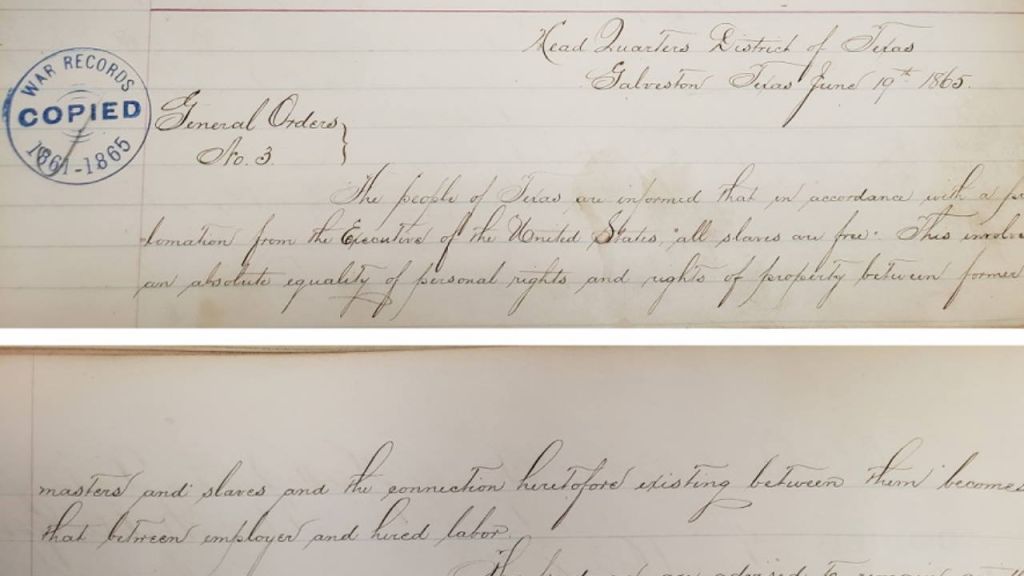 WAR RECORDS
COPIED
1861-1865
Head Quarters District of Texas
Galveston Texas June 19th 1865.
General Orders
No. 3
The people of Texas are informed that in accordance with a
lomation from the Executive of the United States, "all slaves are free." This involve
an absolute equality of personal rights and rights of property between former
masters and slaves and the connection heretofore existing between them becomes
that between employer and hired labor.